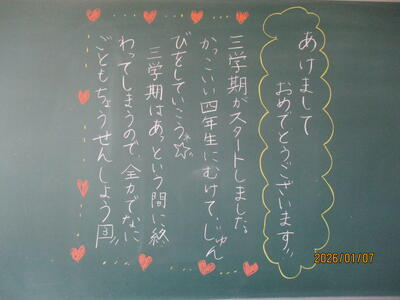 あけまして
おめでとうございます!!
三学期がスタートしました。
かっこいい四年生にむけて、じゅん
びをしていこう☆
三学期はあっという間に終
わってしまうので、全力でなに
ごともちょうせんしよう!!
2026/01/07